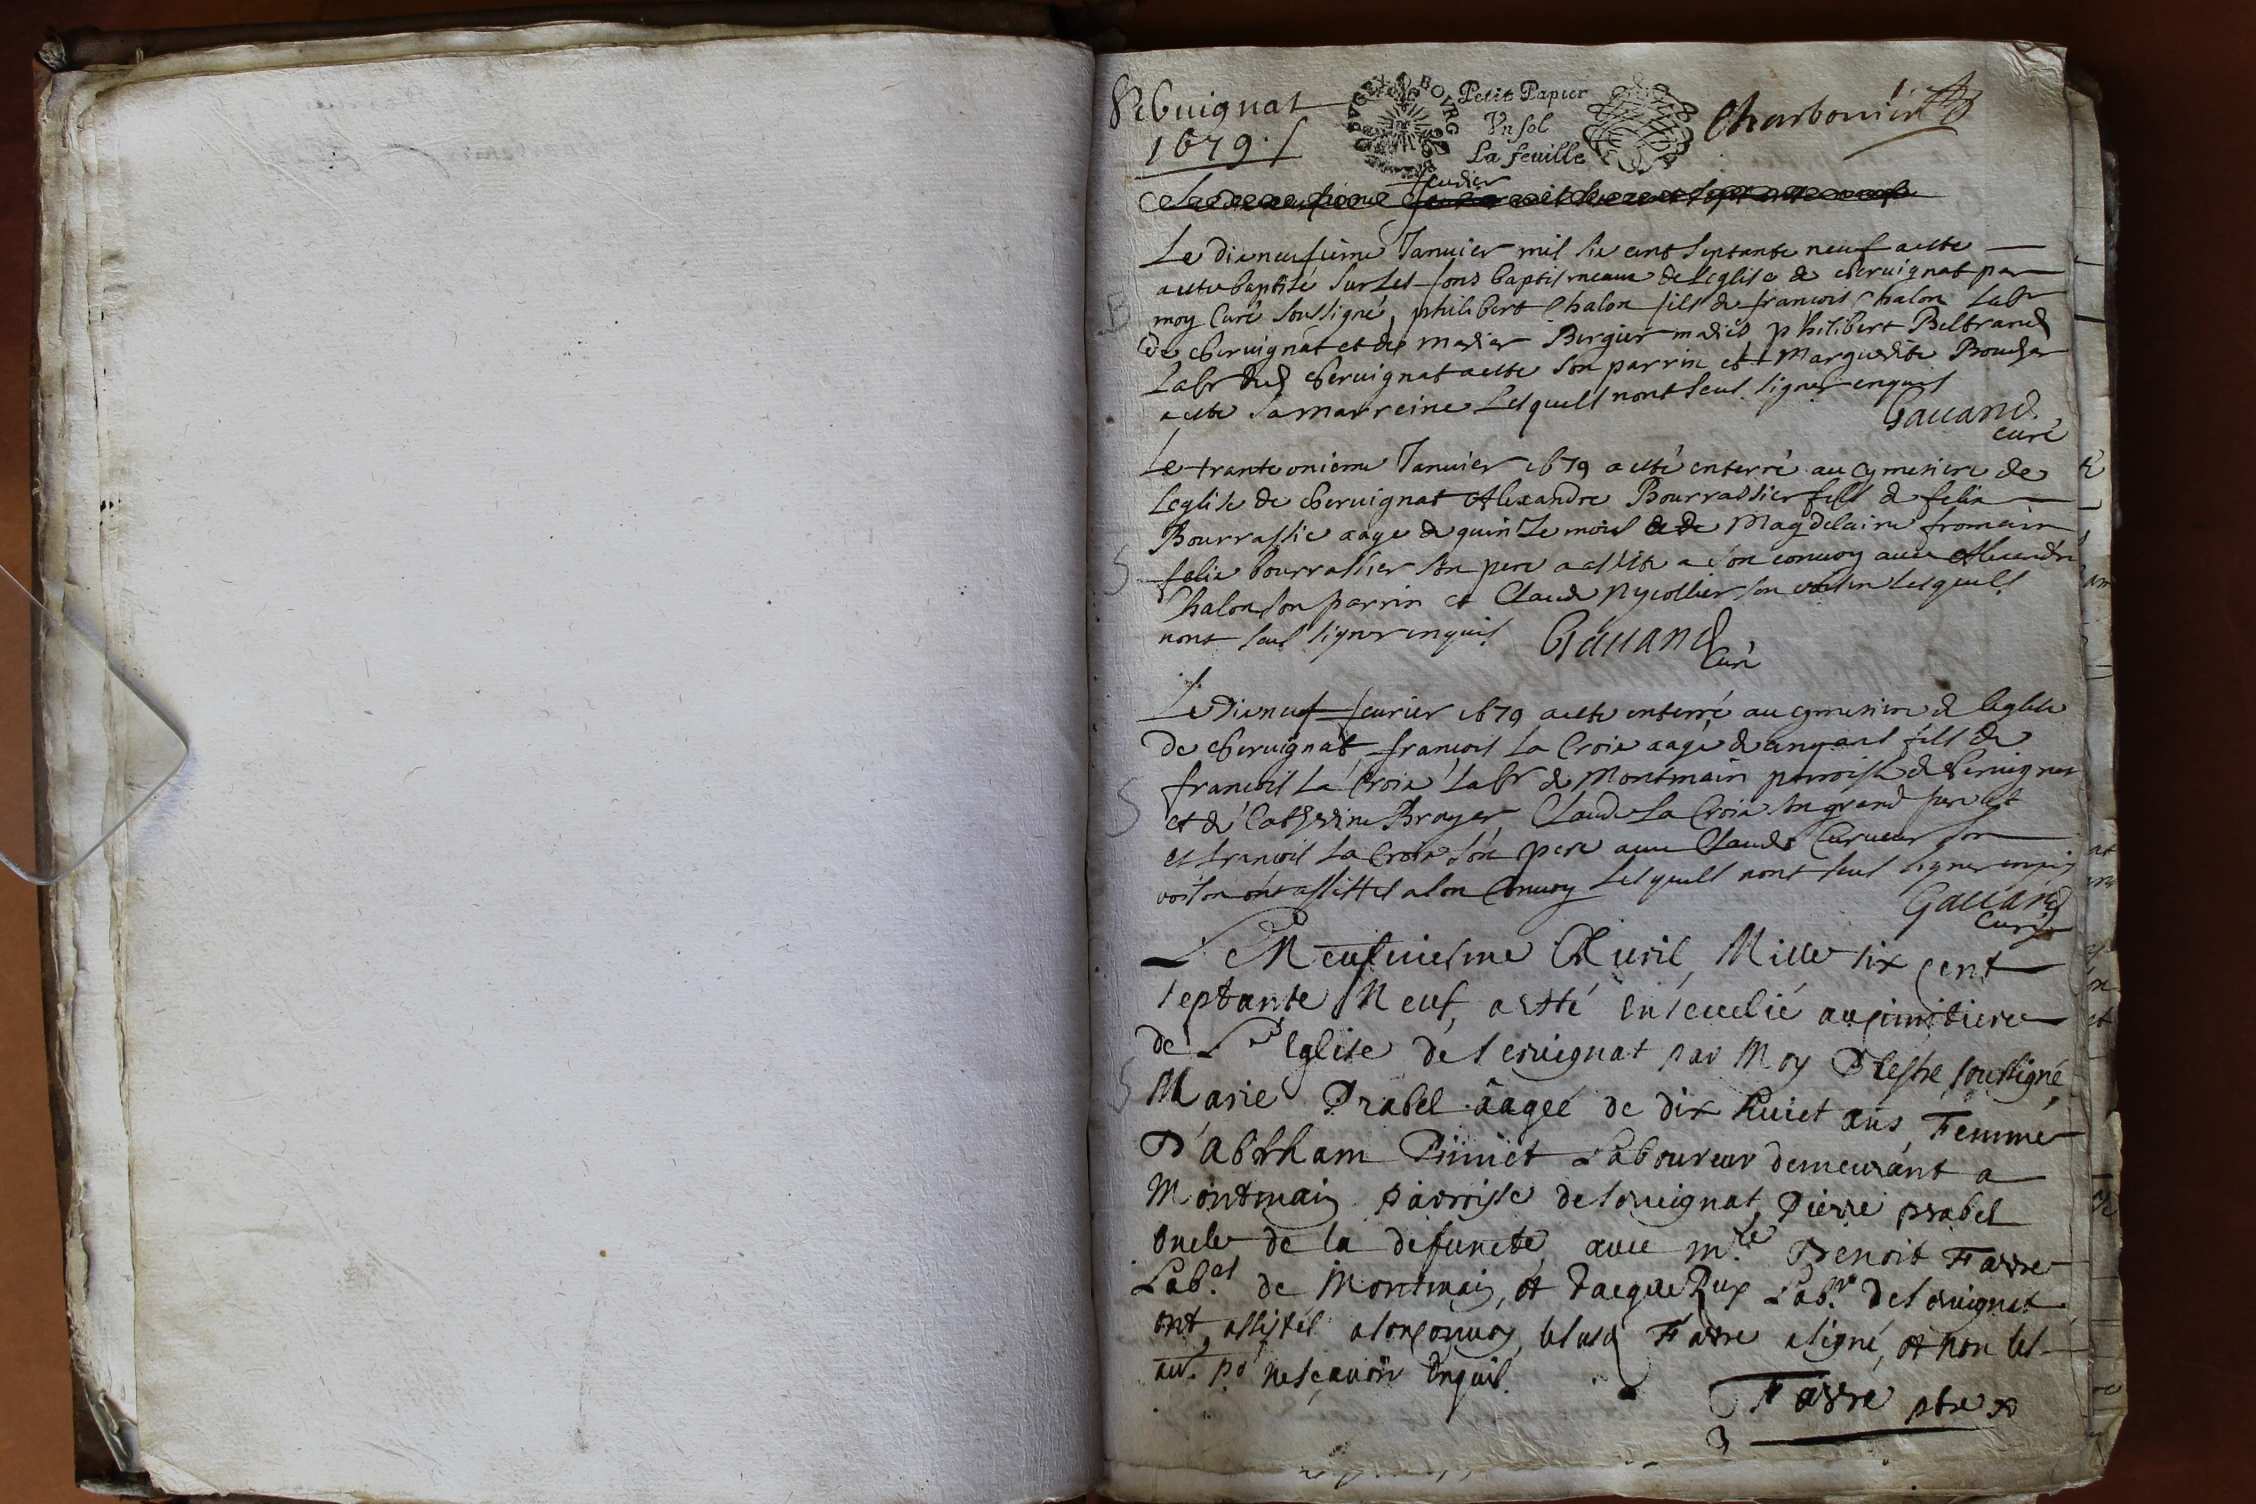 1679
GEN BOVRG
Petit Papier
Vn sol
La feuille
Charbonier
Le dixneufieme Januier mil six cent septante neuf a este
a este baptisé sur les fons baptismeaux de Leglise de cheruignat par
moy Curé soussigné, philibert Chalon fils de francois Chalon Labr
de cheruignat et de Bergier philibert Beltrand
Labr dud cheruignat a este son parrin et Marguerite
a este sa marreine Lesquels nont seus signer enquis
Gauand
curé
B
Le trante onieme Januier 1679 a esté enterré au cymetiere de
Leglise de cheruignat Alexandre Bourrassier fils de felix
Bourrassie aage de quinze mois de Magdelaine fromain
felix bourrassier son pere a assiste a son conuoy auec Alexandre
Chalon son parrin et Claude Nycollier son voisin Lesquels
nont seus signer enquis Gauand
Curé
S
Le Dixneuf feurier 1679 a este enterré au cymetiere de leglise
de cheruignat, francois La Croix aagé de cinq ans fils de
francois La Croix Labr de Montmain parroisse de
et de Catherine Broyer, Claude La Croix son grand pere et
et francois La Croix son pere auec Claude son
voisin ont assistes a son Conuoy Lesquels nont seus signer enquis
Gauand
Curé
S
Le Neufuiesme Auril, Mille six cent
septante Neuf, a esté enseuelié au cimitiere
de L'Eglise de seruignat par Moy Prestre soussigné
Marie Prabel âageé de dix huict ans, Femme
D'abrham Laboureur demeurant a
Montmain parroisse de seruignat, Pierre prabel
oncle de la defuncte, auec Mre Benoit Farre
Labr de Montmain, et Jacque Labr de seruignat
ont assistés a son conuoy, Farre a signé, et non les
au. pr ne sçauoir enquis.
Farre ptre
S